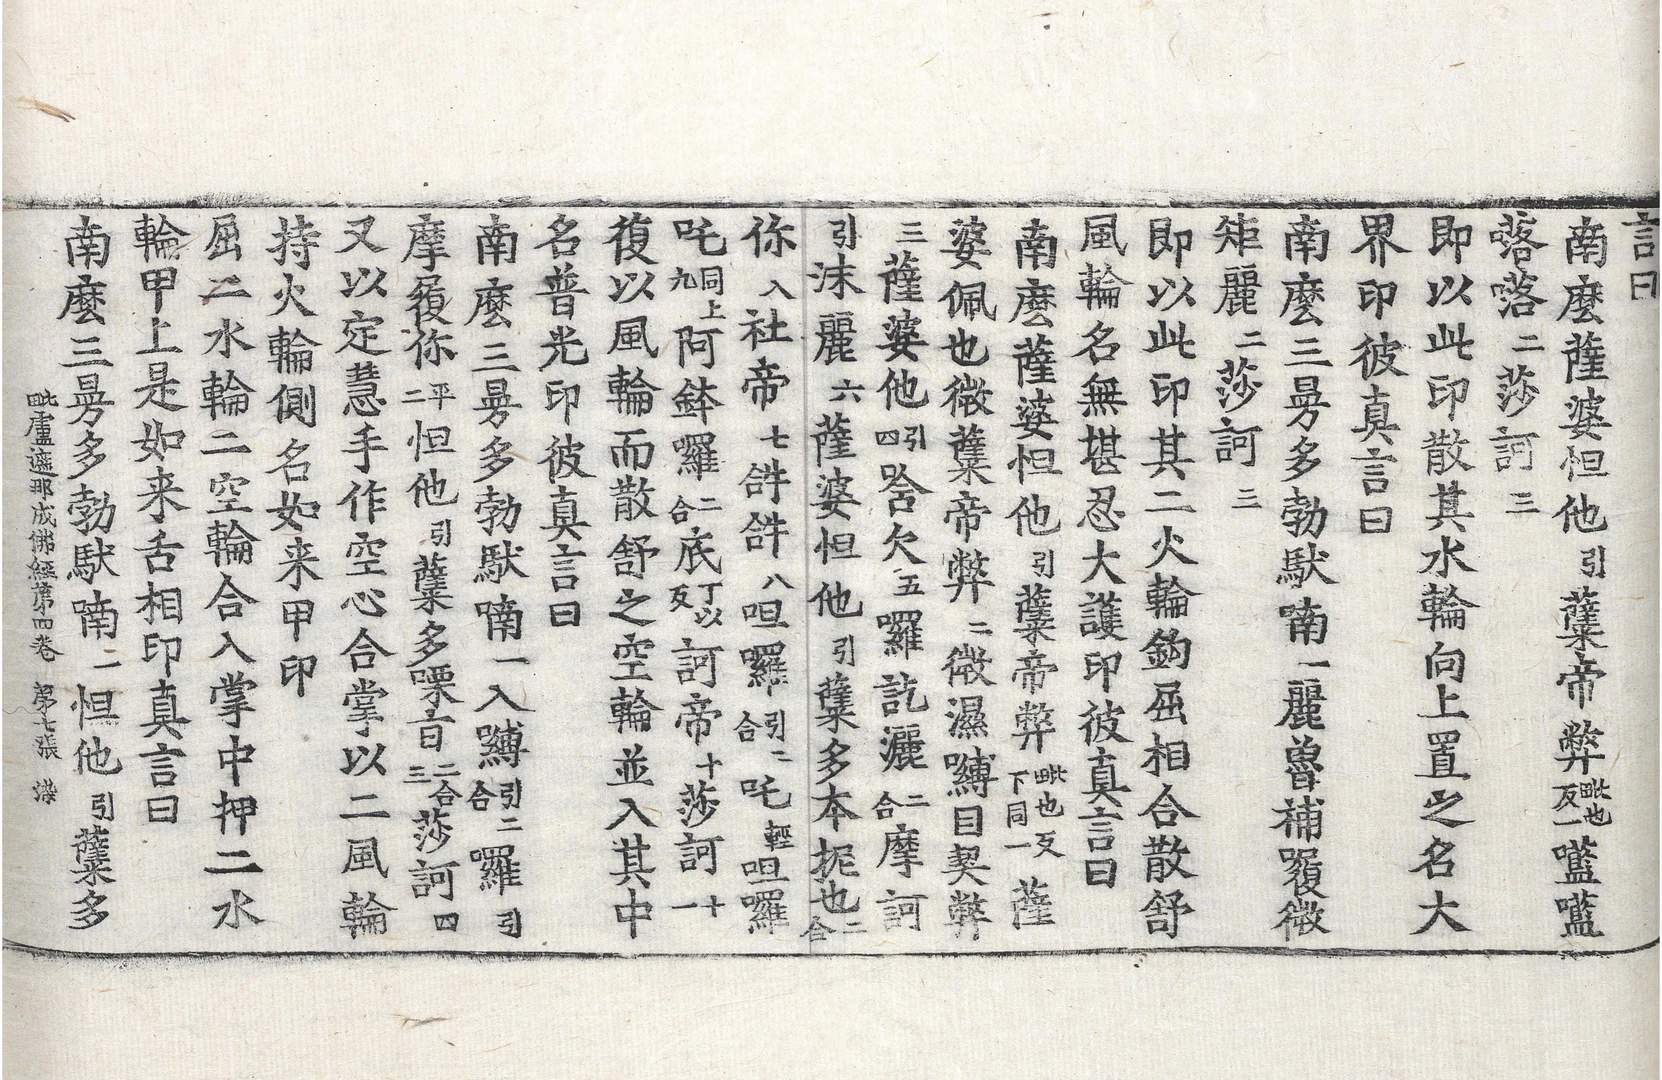 言曰
南麼薩婆怛他引蘗帝弊毗也反一嚂嚂
㗚㗚二莎訶三
即以此印散其水輪向上置之名大
界印彼真言曰
南麼三曼多勃馱喃一麗魯補履微
矩麗二莎訶三
即以此印其二火輪鉤屈相合散舒
風輪名無堪忍大護印彼真言曰
南麼薩婆怛他引蘗帝弊毗也反下同一薩
婆佩也微蘗帝弊二微濕嚩目契弊
三薩婆他引四唅欠五囉訖灑二合摩訶
引沫麗六薩婆怛他引蘗多本抳也二合
你入社帝七𤙖𤙖八呾囉引二合吒輕呾囉
吒同上九阿鉢囉二合底丁以反訶帝十莎訶十一
復以風輪而散舒之空輪並入其中
名普光印彼真言曰
南麼三曼多勃馱喃一入嚩引二合囉引
摩履你平二怛他引蘗多㗚旨二合三莎訶四
又以定慧手作空心合掌以二風輪
持火輪側名如来甲印
屈二水輪二空輪合入掌中押二水
輪甲上是如来舌相印真言曰
南麼三曼多勃馱喃一怛他引蘗多
毗盧遮那成佛經第四卷 第七張 染